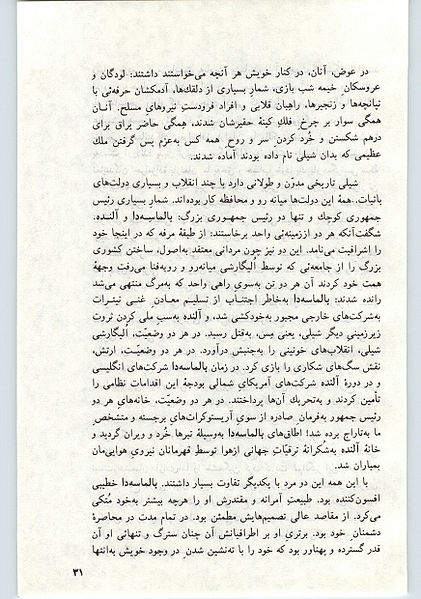 در عوض، آنان، در کنار خویش هر آنچه می‌خواستند داشتند: لودگان و
عروسکان خیمه شب بازی، شمار بسیاری از دلقک‌ها، آدمکشان حرفه‌ئی با
تپانچه‌ها و زنجیرها، راهبان قلابی و افراد فرودست نیروهای مسلح. آنان
همگی سوار بر چرخ فلک کینهٔ حقیرشان شدند، همگی حاضر یراق برای
درهم شکستن و خُرد کردن سر و روح همه کس به‌عزم پس گرفتن ملک
عظیمی که بدان شیلی نام داده بودند آماده شدند.
شیلی تاریخی مدوّن و طولانی دارد با چند انقلاب و بسیاری دولت‌های
باثبات. همهٔ این دولت‌ها میانه رو و محافظه کار بوده‌اند. شمار بسیاری رئیس
جمهوری کوچک و تنها دو رئیس جمهوری بزرگ: بالماسه‌دا و آلنده.
شگفت‌آنکه هر دو از زمینه‌ئی واحد برخاستند: از طبقهٔ مرفه که در اینجا خود
را اشرافیت می‌نامد. این دو نیز چون مردانی معتقد به‌اصول، ساختن کشوری
بزرگ را از جامعه‌ئی که توسط اُلیگارشی میانه‌رو و روبه‌فنا می‌رفت وجههٔ
همت خود کردند آن هر دو تن به‌سوی راهی واحد که به‌مرگ منتهی می‌شد
رانده شدند: بالماسه‌دا به‌خاطر اجتناب از تسلیم معادن غنی نیترات
به‌شرکت‌های خارجی مجبور به‌خودکشی شد، و آلنده به‌سبب ملی کردن ثروت
زیرزمینی دیگر شیلی، یعنی مس، به‌قتل رسید. در هر دو وضعیّت، اُلیگارشی
شیلی، انقلاب‌های خونینی را به‌جنبش درآورد. در هر دو وضعیّت، ارتش،
نقش سگ‌های شکاری را بازی کرد. در زمان بالماسه‌دا شرکت‌های انگلیسی
و در دورهٔ آلنده شرکت‌های آمریکای شمالی بودجهٔ این اقدامات نظامی را
تأمین کردند و به‌تحریک آن‌ها پرداختند. در هر دو وضعیّت، خانه‌های هر دو
رئیس جمهور به‌فرمان صادره از سوی آریستوکرات‌های برجسته و متشخص
ما به‌تاراج برده شد؛ اطاق‌های بالماسه‌دا به‌وسیلهٔ تبرها خُرد و ویران گردید و
خانهٔ آلنده به‌شُکرانهٔ ترقیّات جهانی ازهوا توسط قهرمانان نیروی هوایی‌مان
بمباران شد.
با این همه این دو مرد با یکدیگر تفاوت بسیار داشتند. بالماسه‌دا خطیبی
افسون‌کننده بود. طبیعت آمرانه و مقتدرش او را هرچه بیشتر به‌خود مُتکی
می‌کرد. از مقاصد عالی تصمیم‌هایش مطمئن بود. در تمام مدت در محاصرهٔ
دشمنان خود بود. برتری او بر اطرافیانش آن چنان سترگ و تنهائی او آن
قدر گسترده و پهناور بود که خود را با ته‌نشین شدن در وجود خویش به‌انتها
۳۱